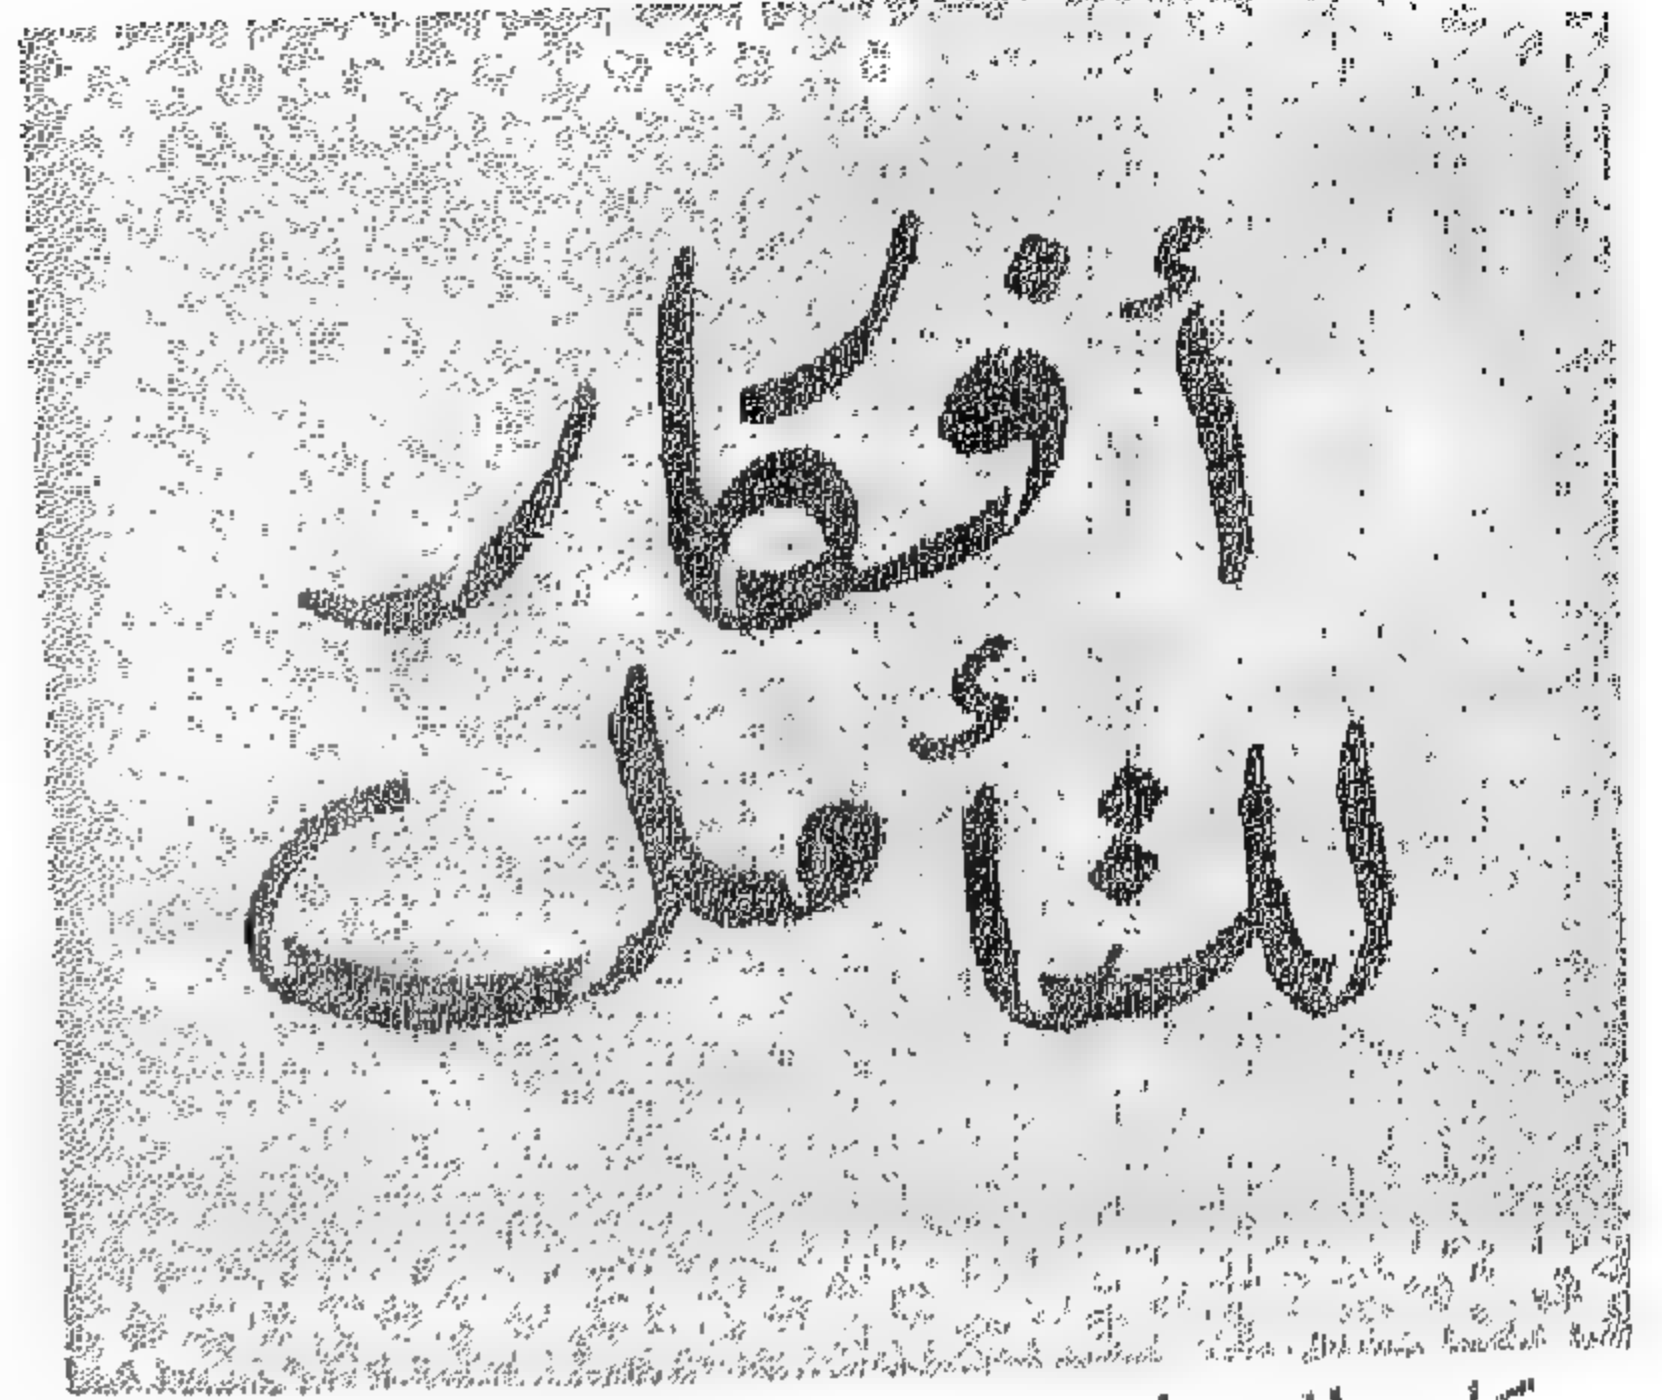 أفكار
للتأمل